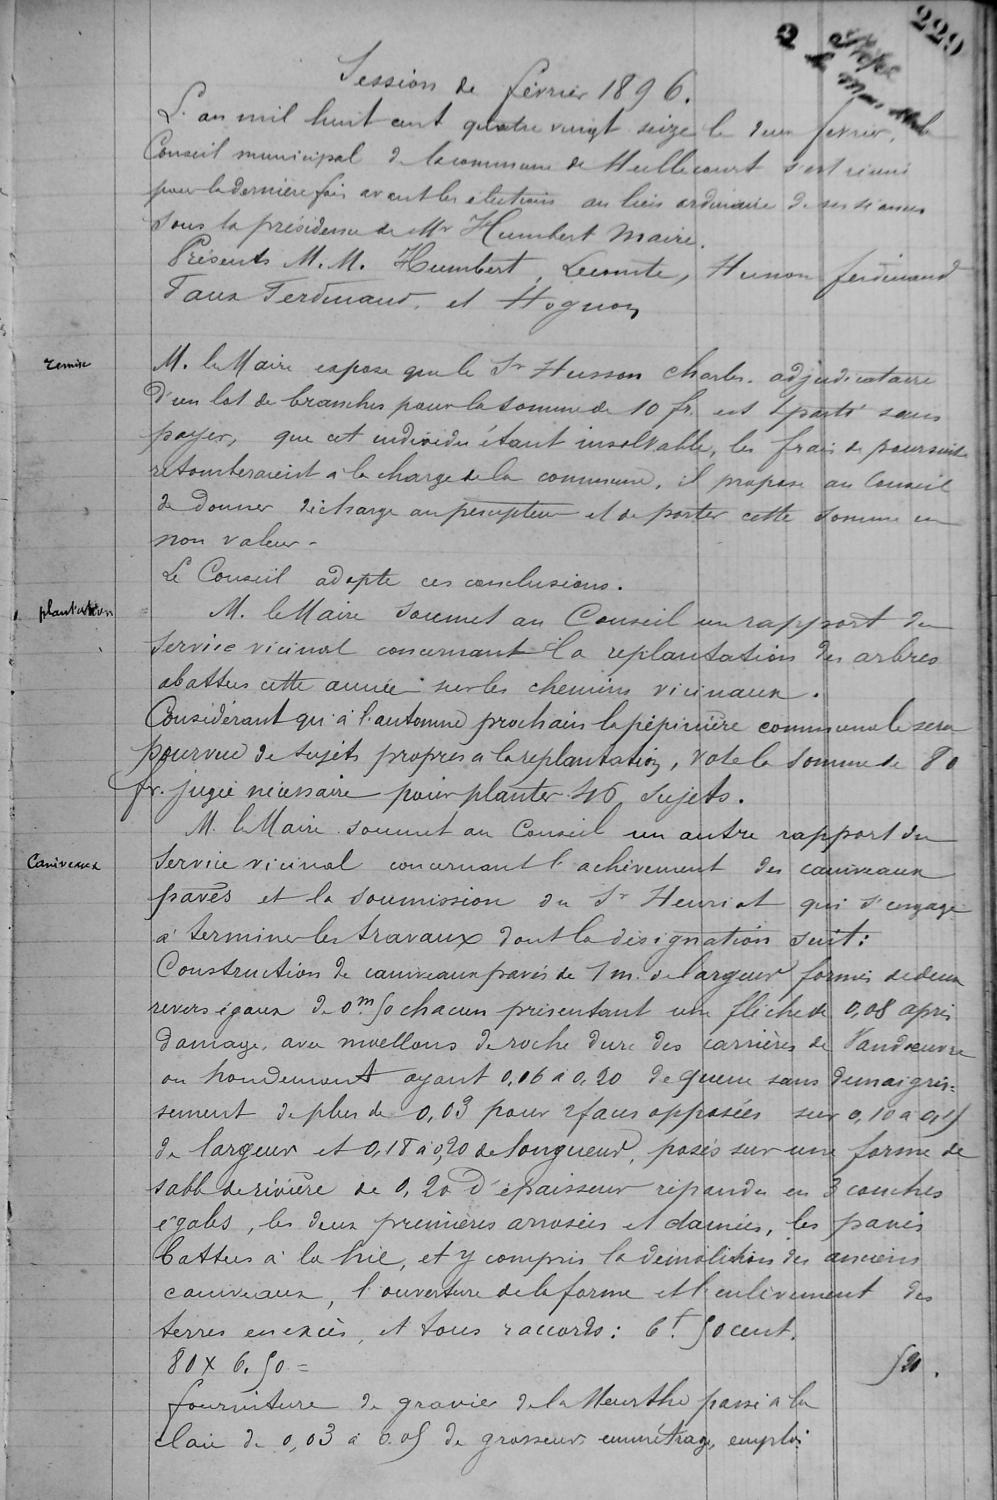 229
2
Session de février 1896.
L'an mil huit cent quatre vingt seize le deux février, le
Conseil municipal de la commune de Heillecourt s'est réuni
pour la dernière fois avant les élections au lieu ordinaire de ses séances
sous la présidence de Mr Humbert Maire.
Présents M.M. Humbert, Lecomte, ferdinand
Ferdinand, et Hognon
remise
M. le Maire expose que le Sr Husson Charles. adjudicataire
d'un lot de branches pour la somme de 10 fr. est parti sans
payer, que cet individu étant insolvable, les frais de poursuite
retomberaient à la charge de la commune, il propose au Conseil
de donner décharge au percepteur et de porter cette somme en
non valeur.
Le Conseil adopte ces conclusions.
plantation
M. le Maire soumet au Conseil un rapport du
Service vicinal concernant la replantation des arbres
abattus cette année sur les chemins vicinaux.
Considérant qu'à l'automne prochain la pépinière communale sera
pourvue de sujets propres à la replantation, vote la somme de 80
fr. jugée nécessaire pour planter 46 sujets.
M. le Maire soumet au Conseil un autre rapport du
Caniveaux
Service vicinal concernant l'achèvement des caniveaux
pavés et la soumission du Sr Henriot qui s'engage
à terminer les travaux dont la désignation suit:
Construction de caniveaux pavés de 1m. de largeur formés de deux
revers égaux de 0m.50 chacun présentant une flèche de 0,08 après
damage, avec moellons de roche dure des carrières de Vandœuvre
ou houdemont ayant 0,16 à 0,20 de queue sans démaigris=
sement de plus de 0,03 pour 2 faces opposées sur 0,10 à 0,15
de largeur et 0,18 à 0,20 de longueur, posés sur une forme de
sable de rivière de 0,20 d'épaisseur répandu en 3 couches
égales, les deux premières arrosées et damées, les pavés
battus à la hie, et y compris la démolition des anciens
caniveaux, l'ouverture de la forme et l'enlèvement des
terres en excès, et tous raccords: 6f. 50 cent.
80 x 6.50 = 520.
fourniture de gravier de la Meurthe passé à la
claie de 0,03 à 0.05 de grosseur, emmétrage, emploi